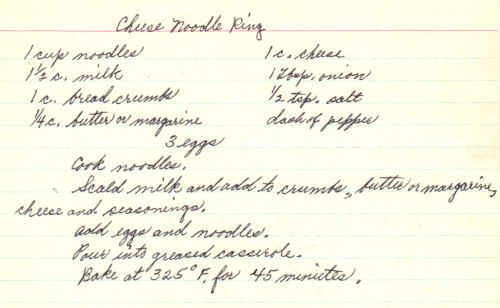 Cheese Noodle Ring
1 cup noodles 1 c. cheese
1 1/2 c. milk 1 Tbsp. onion
1 c. bread crumbs 1/2 tsp. salt
1/4 c. butter or margarine dash of pepper
3 eggs
Cook noodles.
Scald milk and add to crumbs, butter or margarine,
cheese and seasonings.
Add eggs and noodles.
Pour into greased casserole.
Bake at 325° F. for 45 minutes.